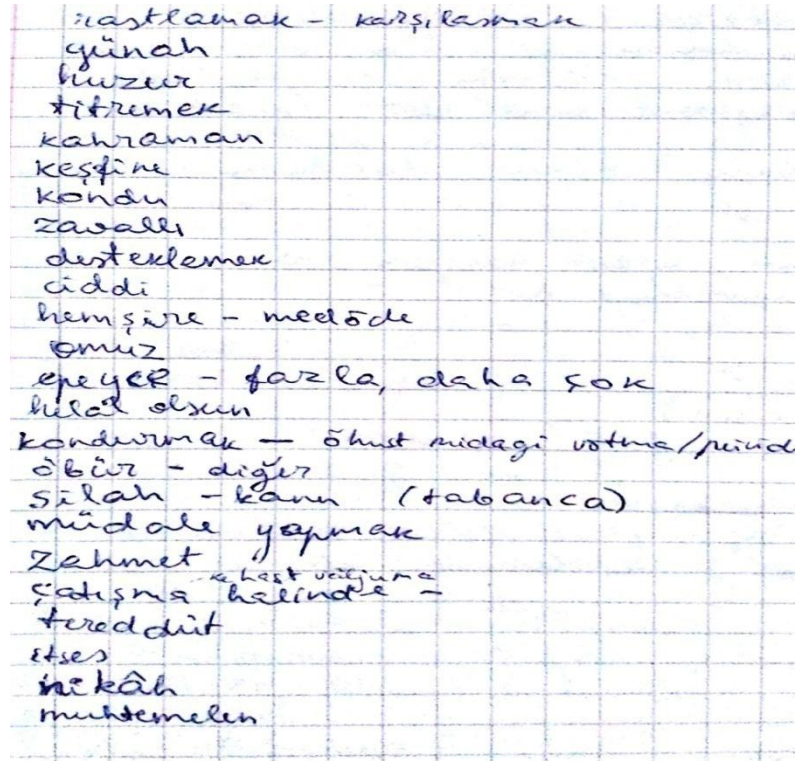 rastlamak - karşılaşmak
günah
huzur
titremek
kahraman
keşfine
kondu
zavallı
desteklemek
ciddi
hemşire - medõde
omuz
epeyce - fazla, daha çok
helâl olsun
kondurmak - õhust midagi võtma/
öbür - diğer
silah - (tabanca)
müdale yapmak
zahmet
çatışma halinde -
tereddüt
nikâh
muhtemelen